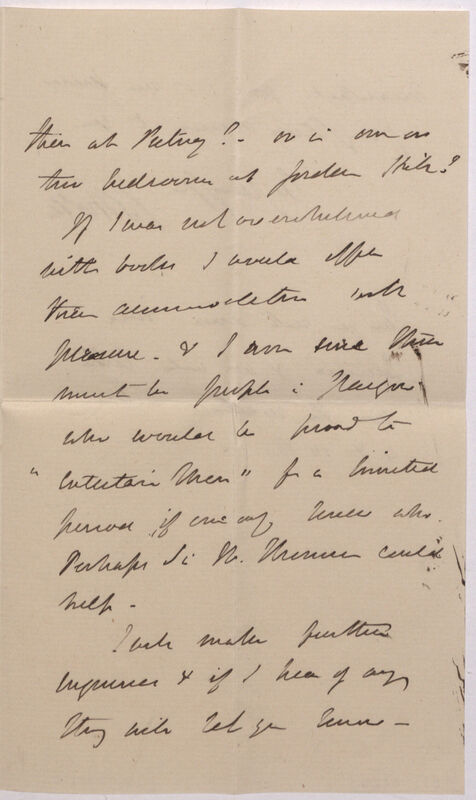 them at Putney? - or in one or
two bedrooms at Jordan Hill?
If I was not overwhelmed
with books I would offer
them accommodation with
pleasure - & I am sure there
must be people in Glasgow
who would be proud to
"entertain them" for a limited
period if one only knew who.
Perhaps Sir W. Thomson could
help -
I will make further
inquiries & if I hear of any
thing will let you know -